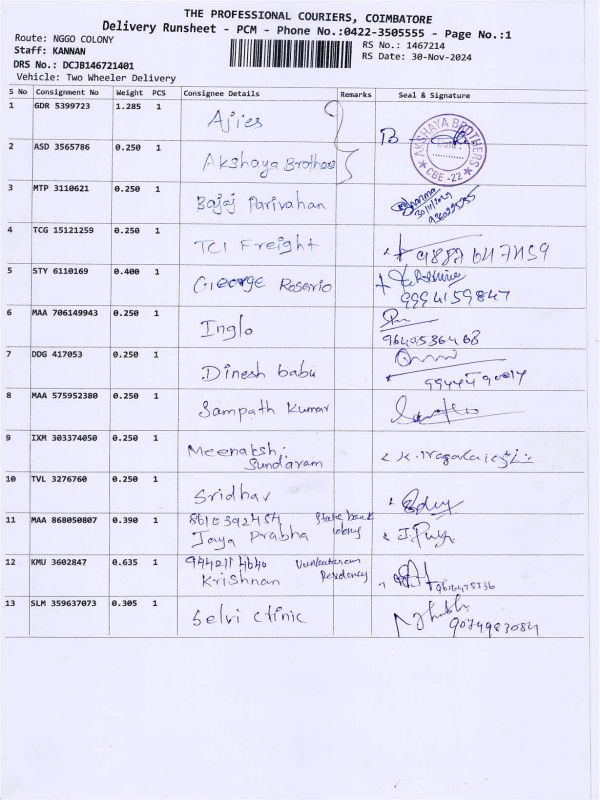 THE PROFESSIONAL COURIERS, COIMBATORE
Delivery Runsheet - PCM - Phone No.:0422-3505555 - Page No.:1
Route: NGGO COLONY
RS No.: 1467214
Staff: KANNAN
RS Date: 30-Nov-2024
DRS No.: DCJB146721401
Vehicle: Two Wheeler Delivery
S No Consignment No Weight PCS Consignee Details Remarks Seal & Signature
1 GDR 5399723 1.285 1 Ajies
2 ASD 3565786 0.250 1 Akshaya Brothers AKSHAYA BROTHERS CBE-22
3 MTP 3110621 0.250 1 Bajaj Parivahan
4 TCG 15121259 0.250 1 TCI Freight
5 STY 6110169 0.400 1 George Rosario 9994159847
6 MAA 706149943 0.250 1 Inglo
7 DDG 417053 0.250 1 Dinesh babu
8 MAA 575952380 0.250 1 Sampath Kumar
9 IXM 303374050 0.250 1 Meenakshi
Sundaram
10 TVL 3276760 0.250 1 Sridhar
11 MAA 868050807 0.390 1 8610392454 State bank
Jaya Prabha colony
12 KMU 3602847 0.635 1
Krishnan Residency
13 SLM 359637073 0.305 1 Selvi clinic 9074983084